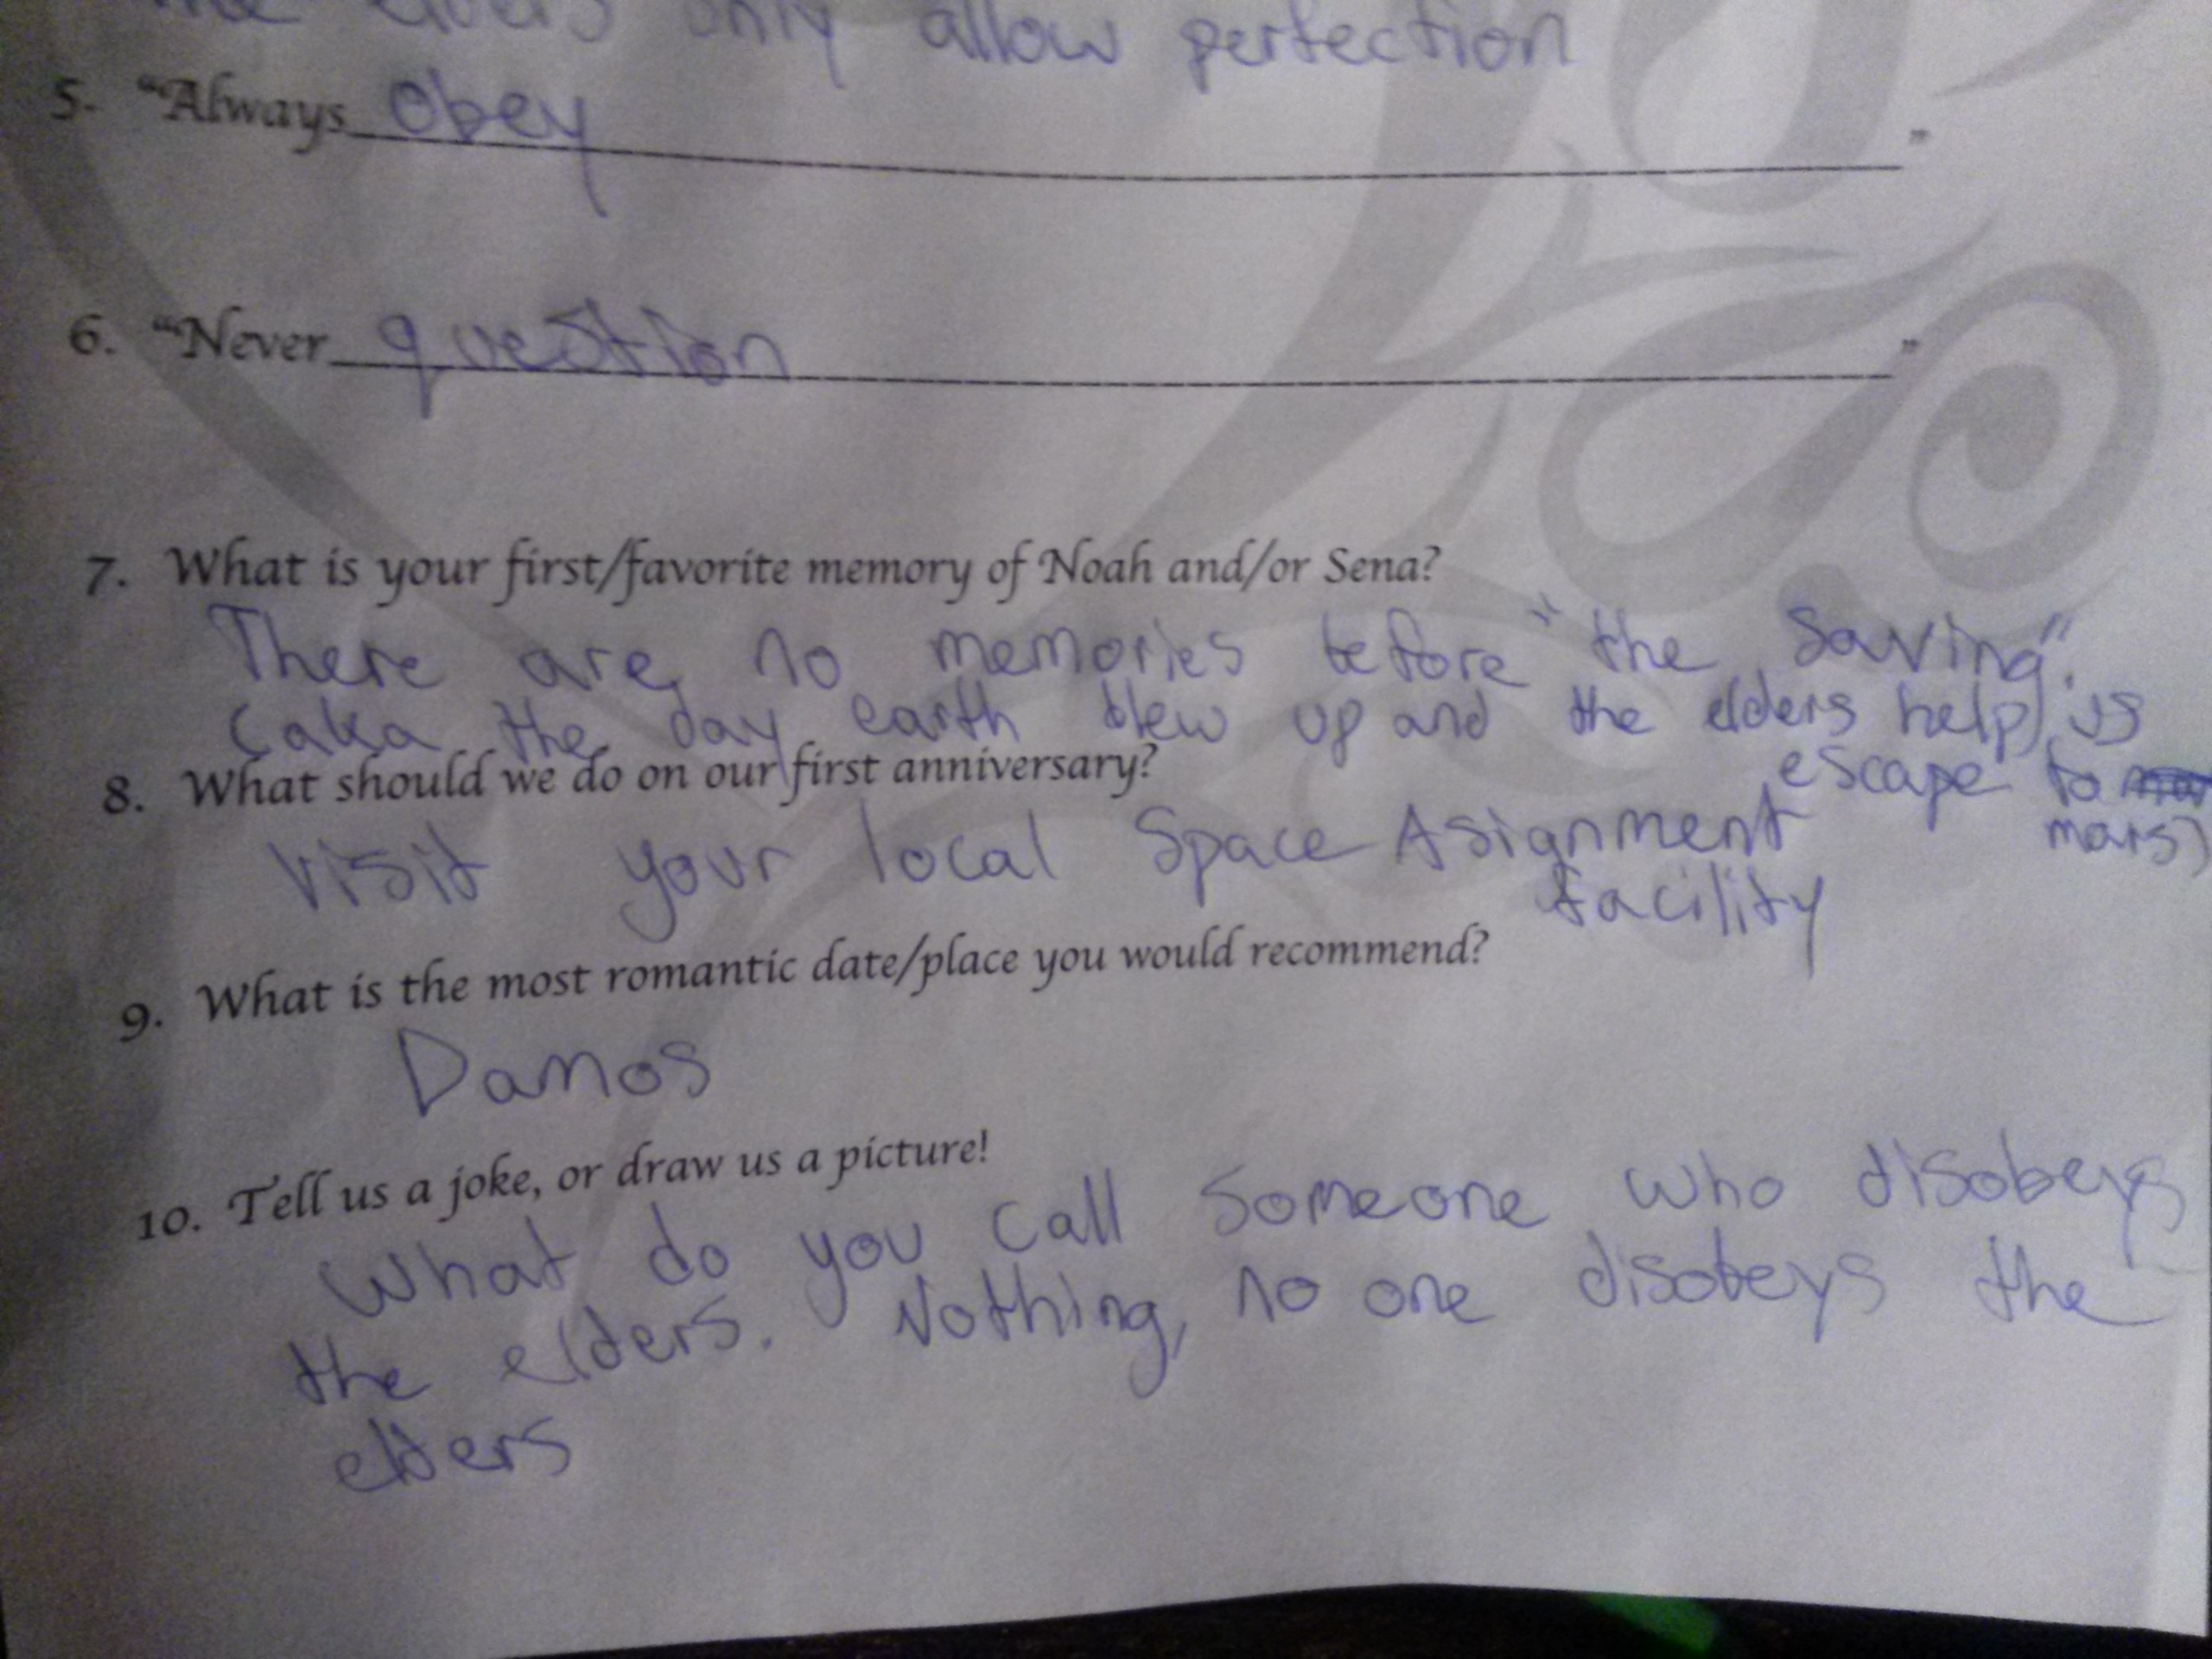 The elders only allow perfection
5. "Always Obey"
6. "Never question"
7. What is your first/favorite memory of Noah and/or Sena?
There are no memories before "the Saving".
(aka the day earth blew up and the elders help us
escape to
mars)
8. What should we do on our first anniversary?
Visit your local Space Asignment
facility
9. What is the most romantic date/place you would recommend?
Damos
10. Tell us a joke, or draw us a picture!
What do you call someone who disobeys
the elders. Nothing, no one disobeys the
elders